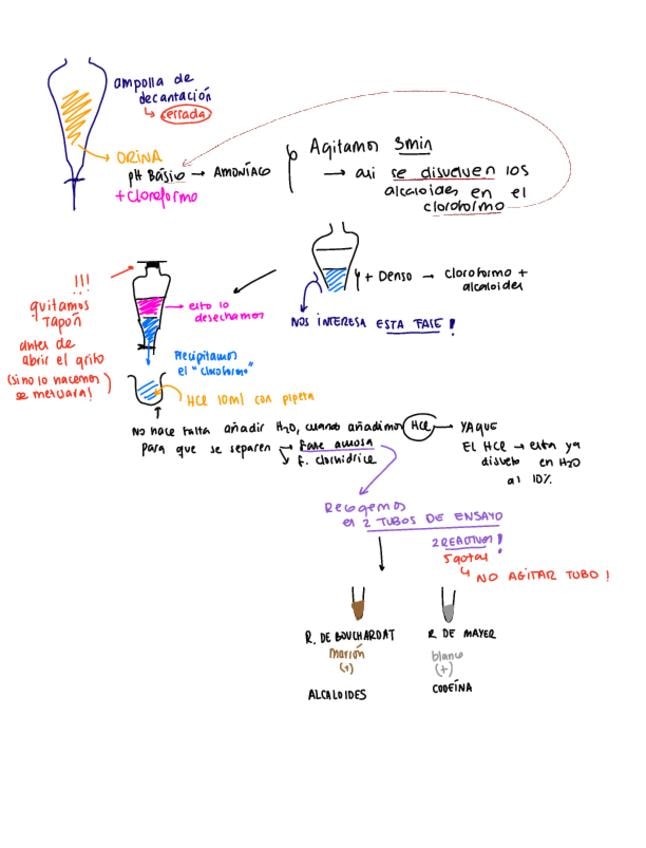 ampolla de
decantación
↳ cerrada
ORINA
pH Básico → AMONÍACO
+ cloroformo
Agitamos 3min
→ asi se disuelven los
alcaloides en el
cloroformo
+ Denso → cloroformo +
alcaloides
NOS INTERESA ESTA FASE!
!!!
quitamos
TAPÓN
antes de
abrir el grifo
(si no lo hacemos
se mezclara!)
esto lo
desechamos
Precipitamos
el "cloroformo"
HCl 10ml con pipeta
No hace falta añadir H₂O, cuando añadimos HCl → YA QUE
para que se separen → Fase acuosa
↘ F. clorhídrica
EL HCl → esta ya
disuelto en H₂O
al 10%
Recogemos
en 2 TUBOS DE ENSAYO
2 REACTIVOS!
5 gotas
↳ NO AGITAR TUBO!
R. DE BOUCHARDAT
marrón
(+)
ALCALOIDES
R. DE MAYER
blanco
(+)
CODEÍNA